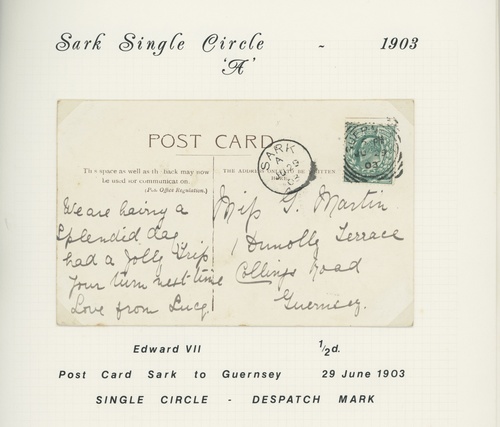 Sark Single Circle - 1903
'A'
POST CARD
This space as well as the back may now
be used for communication.
(Post Office Regulation.)
THE ADDRESS ONLY TO BE WRITTEN
HERE.
SARK
A
JU 29
03
GUERNSEY
03
We are having a
Splendid day
had a Jolly Trip
Your turn next time
Love from Lucy.
Miss G. Martin
1 Dunolly Terrace
Collings Road
Guernsey.
Edward VII 1/2d.
Post Card Sark to Guernsey 29 June 1903
SINGLE CIRCLE - DESPATCH MARK